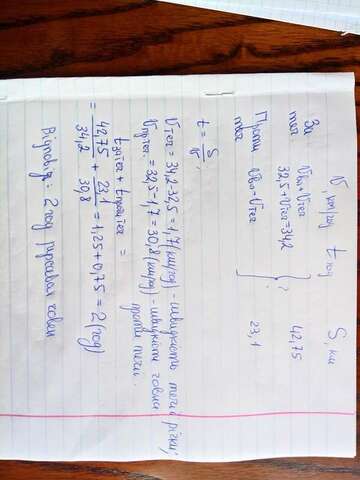 V, км/год t, год S, км
За Vвл + Vтеч
теч 32,5 + Vтеч = 34,2 ? 42,75
Проти Vвл - Vтеч 23,1
течії
t = S/V;
Vтеч = 34,2 - 32,5 = 1,7 (км/год) - швидкість течії річки;
Vпр.теч. = 32,5 - 1,7 = 30,8 (км/год) - швидкість човна
проти течії.
tза теч + tпроти теч =
= 42,75/34,2 + 23,1/30,8 = 1,25 + 0,75 = 2 (год)
Відповідь: 2 год рухався човен